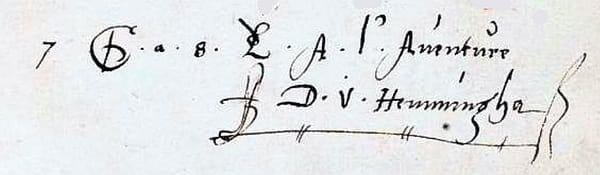 7 . a . 8 . A . l' . Aventure
D . V . Hemmingha